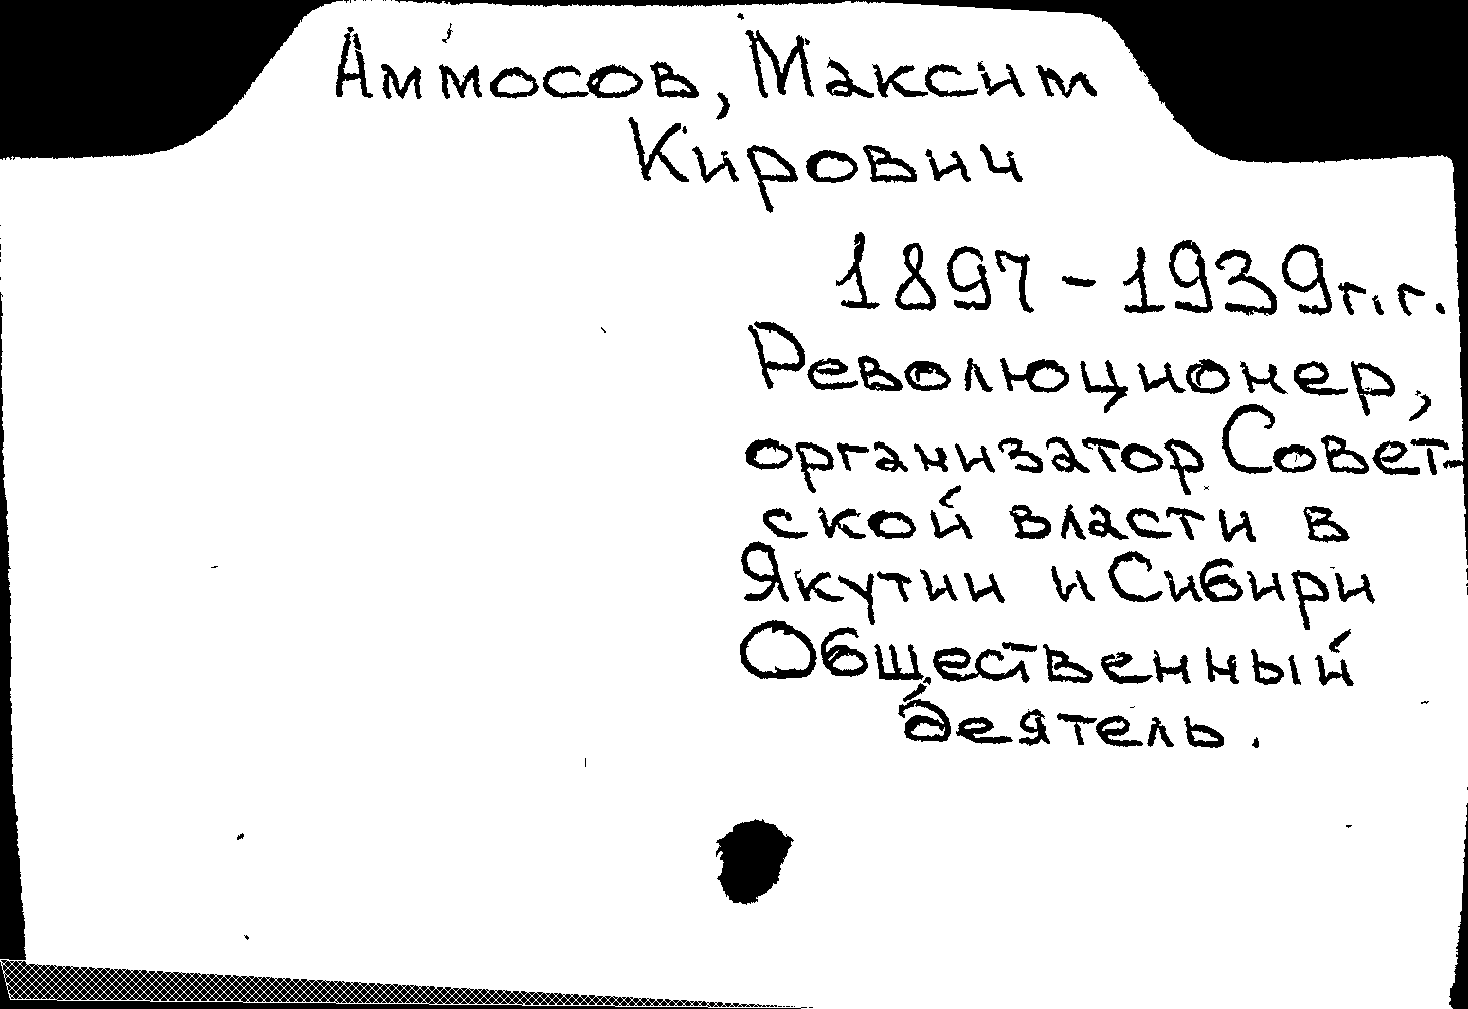 Аммосов, Максим
Кирович
1897-1939г.г.
Революционер,
организатор Совет-
ской власти в
Якутии и Сибири
Общественный
деятель.